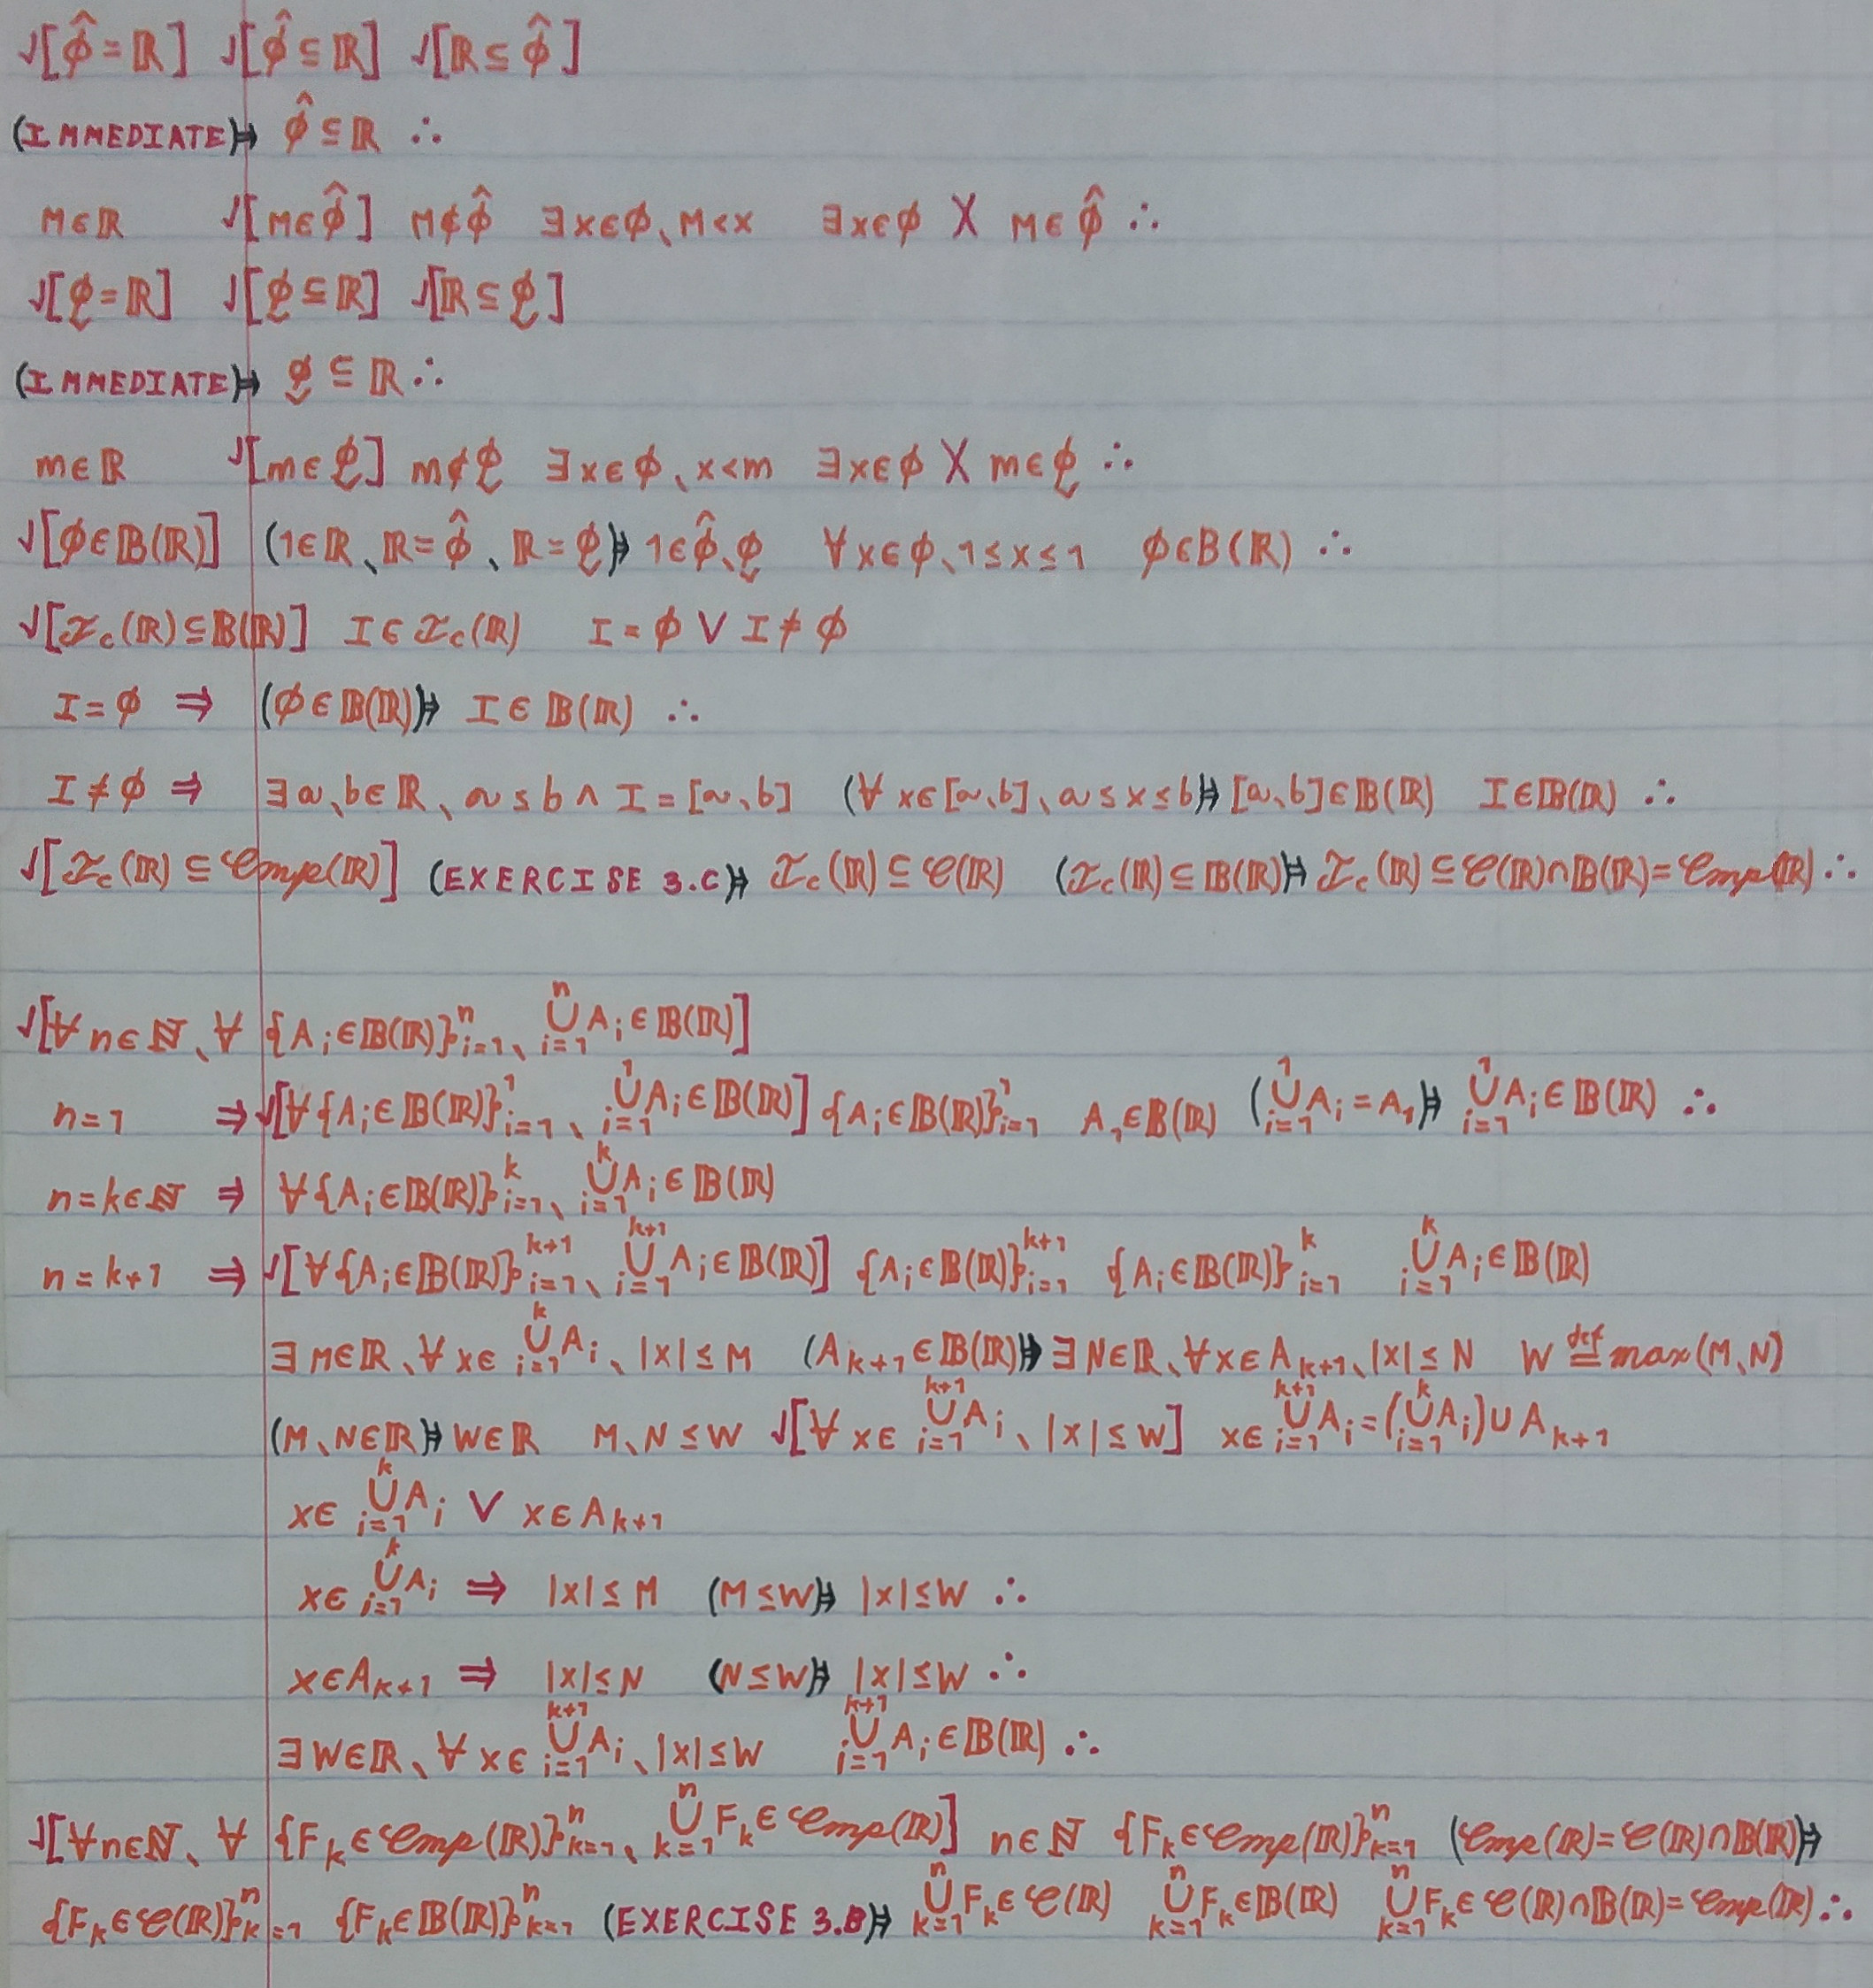 √[ϕ̂ = ℝ] √[ϕ̂ ⊆ ℝ] √[ℝ ⊆ ϕ̂]
(IMMEDIATE)⊫ ϕ̂ ⊆ ℝ ∴
M∈ℝ √[M∈ϕ̂] M∉ϕ̂ ∃x∈ϕ、M<x ∃x∈ϕ X M∈ϕ̂ ∴
√[ϕ̬ = ℝ] √[ϕ̬ ⊆ ℝ] √[ℝ ⊆ ϕ̬]
(IMMEDIATE)⊫ ϕ̬ ⊆ ℝ ∴
m∈ℝ √[m∈ϕ̬] m∉ϕ̬ ∃x∈ϕ、x<m ∃x∈ϕ X m∈ϕ̬ ∴
√[ϕ∈𝔹(ℝ)] (1∈ℝ、ℝ=ϕ̂、ℝ=ϕ̬)⊫ 1∈ϕ̂、ϕ̬ ∀x∈ϕ、1≤x≤1 ϕ∈𝔹(ℝ) ∴
√[ℐc(ℝ)⊆𝔹(ℝ)] I∈ℐc(ℝ) I=ϕ ∨ I≠ϕ
I=ϕ ⇒ (ϕ∈𝔹(ℝ))⊫ I∈𝔹(ℝ) ∴
I≠ϕ ⇒ ∃a、b∈ℝ、a≤b ∧ I=[a、b] (∀x∈[a、b]、a≤x≤b)⊫ [a、b]∈𝔹(ℝ) I∈𝔹(ℝ) ∴
√[ℐc(ℝ) ⊆ 𝒞mp(ℝ)] (EXERCISE 3.C)⊫ ℐc(ℝ)⊆𝒞(ℝ) (ℐc(ℝ)⊆𝔹(ℝ))⊫ ℐc(ℝ)⊆𝒞(ℝ)∩𝔹(ℝ)=𝒞mp(ℝ) ∴
√[∀n∈ℕ、∀ {A_i∈𝔹(ℝ)}_{i=1}^n、⋃_{i=1}^n A_i∈𝔹(ℝ)]
n=1 ⇒ √[∀{A_i∈𝔹(ℝ)}_{i=1}^1、⋃_{i=1}^1 A_i∈𝔹(ℝ)] {A_i∈𝔹(ℝ)}_{i=1}^1 A_1∈𝔹(ℝ) (⋃_{i=1}^1 A_i=A_1)⊫ ⋃_{i=1}^1 A_i∈𝔹(ℝ) ∴
n=k∈ℕ ⇒ ∀{A_i∈𝔹(ℝ)}_{i=1}^k、⋃_{i=1}^k A_i∈𝔹(ℝ)
n=k+1 ⇒ √[∀{A_i∈𝔹(ℝ)}_{i=1}^{k+1}、⋃_{i=1}^{k+1} A_i∈𝔹(ℝ)] {A_i∈𝔹(ℝ)}_{i=1}^{k+1} {A_i∈𝔹(ℝ)}_{i=1}^k ⋃_{i=1}^k A_i∈𝔹(ℝ)
∃M∈ℝ、∀x∈ ⋃_{i=1}^k A_i、|x|≤M (A_{k+1}∈𝔹(ℝ))⊫ ∃N∈ℝ、∀x∈A_{k+1}、|x|≤N W ≝ max(M、N)
(M、N∈ℝ)⊫ W∈ℝ M、N≤W √[∀x∈ ⋃_{i=1}^{k+1} A_i、|x|≤W] x∈ ⋃_{i=1}^{k+1} A_i=(⋃_{i=1}^k A_i)∪A_{k+1}
x∈ ⋃_{i=1}^k A_i ∨ x∈A_{k+1}
x∈ ⋃_{i=1}^k A_i ⇒ |x|≤M (M≤W)⊫ |x|≤W ∴
x∈A_{k+1} ⇒ |x|≤N (N≤W)⊫ |x|≤W ∴
∃W∈ℝ、∀x∈ ⋃_{i=1}^{k+1} A_i、|x|≤W ⋃_{i=1}^{k+1} A_i∈𝔹(ℝ) ∴
√[∀n∈ℕ、∀ {F_k∈𝒞mp(ℝ)}_{k=1}^n、⋃_{k=1}^n F_k∈𝒞mp(ℝ)] n∈ℕ {F_k∈𝒞mp(ℝ)}_{k=1}^n (𝒞mp(ℝ)=𝒞(ℝ)∩𝔹(ℝ))⊫
{F_k∈𝒞(ℝ)}_{k=1}^n {F_k∈𝔹(ℝ)}_{k=1}^n (EXERCISE 3.B)⊫ ⋃_{k=1}^n F_k∈𝒞(ℝ) ⋃_{k=1}^n F_k∈𝔹(ℝ) ⋃_{k=1}^n F_k∈𝒞(ℝ)∩𝔹(ℝ)=𝒞mp(ℝ) ∴